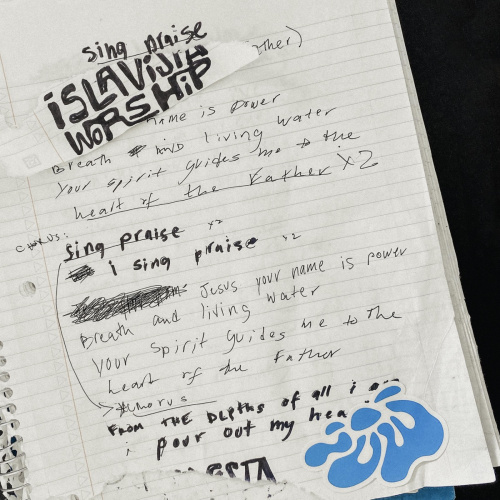 sing praise
ISLA VISTA
WORSHIP
name is power
Breath and living water
Your spirit guides me to the
heart of the Father x2
CHORUS:
sing praise x2
i sing praise x2
Jesus your name is power
Breath and living water
your spirit guides me to the
heart of the Father
chorus
FROM THE DEPTHS of all i am
i pour out my